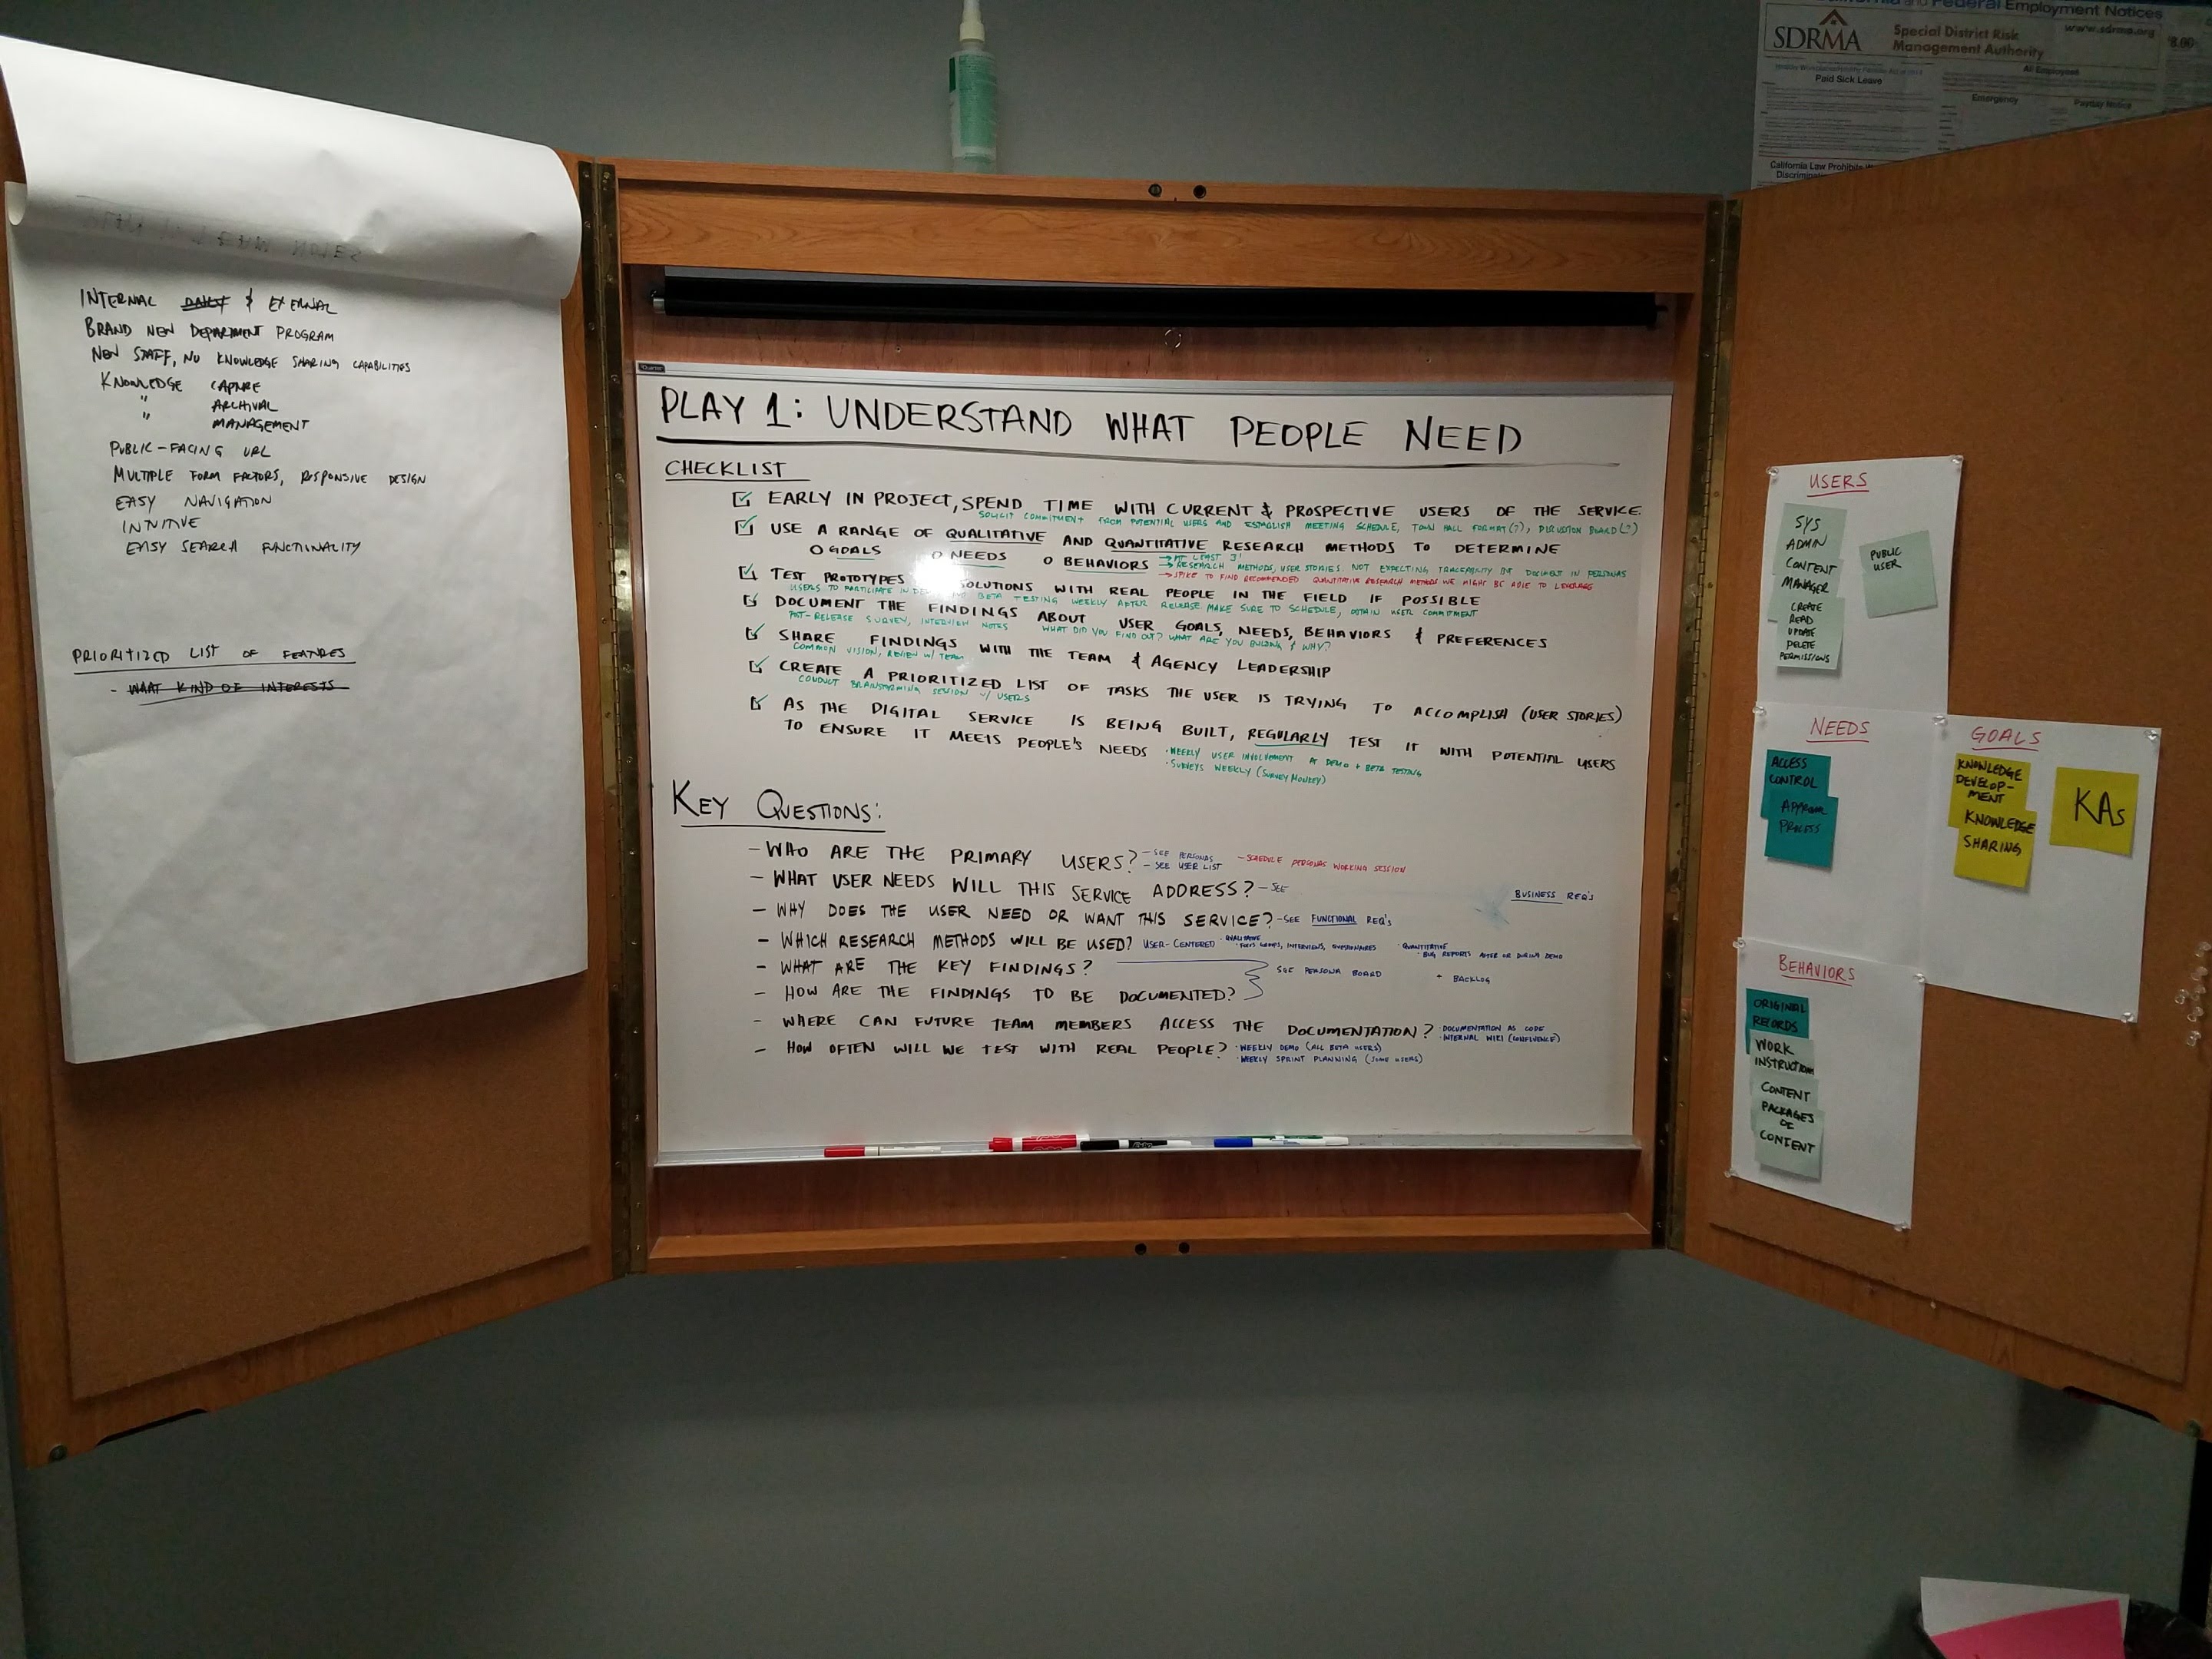 INTERNAL DAILY & EXTERNAL
BRAND NEW DEPARTMENT PROGRAM
NEW STAFF, NO KNOWLEDGE SHARING CAPABILITIES
KNOWLEDGE CAPTURE
" ARCHIVAL
" MANAGEMENT
PUBLIC-FACING URL
MULTIPLE FORM FACTORS, RESPONSIVE DESIGN
EASY NAVIGATION
INTUITIVE
EASY SEARCH FUNCTIONALITY
PRIORITIZED LIST OF FEATURES
- WHAT KIND OF INTERESTS
PLAY 1: UNDERSTAND WHAT PEOPLE NEED
CHECKLIST
EARLY IN PROJECT, SPEND TIME WITH CURRENT & PROSPECTIVE USERS OF THE SERVICE.
SOLICIT COMMITMENT FROM POTENTIAL USERS AND ESTABLISH MEETING SCHEDULE, TOWN HALL FORMAT(?), BOARD(?)
USE A RANGE OF QUALITATIVE AND QUANTITATIVE RESEARCH METHODS TO DETERMINE
O GOALS O NEEDS O BEHAVIORS
→ AT LEAST 3!
→ RESEARCH METHODS, USER STORIES. NOT EXPECTING TRACEABILITY BUT DOCUMENT IN PERSONAS
→ SPIKE TO FIND RECOMMENDED QUANTITATIVE RESEARCH METHODS WE MIGHT BE ABLE TO LEVERAGE
TEST PROTOTYPES SOLUTIONS WITH REAL PEOPLE IN THE FIELD IF POSSIBLE
USERS TO PARTICIPATE IN BETA TESTING WEEKLY AFTER RELEASE. MAKE SURE TO SCHEDULE, OBTAIN USER COMMITMENT
DOCUMENT THE FINDINGS ABOUT USER GOALS, NEEDS, BEHAVIORS & PREFERENCES
POST-RELEASE SURVEY, INTERVIEW NOTES WHAT DID YOU FIND OUT? WHAT ARE YOU BUILDING & WHY?
SHARE FINDINGS WITH THE TEAM & AGENCY LEADERSHIP
COMMON VISION, REVIEW W/ TEAM
CREATE A PRIORITIZED LIST OF TASKS THE USER IS TRYING TO ACCOMPLISH (USER STORIES)
CONDUCT BRAINSTORMING SESSION W/ USERS
AS THE DIGITAL SERVICE IS BEING BUILT, REGULARLY TEST IT WITH POTENTIAL USERS
TO ENSURE IT MEETS PEOPLE'S NEEDS
• WEEKLY USER INVOLVEMENT AT DEMO + BETA TESTING
• SURVEYS WEEKLY (SURVEY MONKEY)
KEY QUESTIONS:
- WHO ARE THE PRIMARY USERS?
- SEE PERSONAS
- SEE USER LIST
- SCHEDULE PERSONAS WORKING SESSION
- WHAT USER NEEDS WILL THIS SERVICE ADDRESS? - SEE BUSINESS REQ'S
- WHY DOES THE USER NEED OR WANT THIS SERVICE? - SEE FUNCTIONAL REQ'S
- WHICH RESEARCH METHODS WILL BE USED? USER-CENTERED
• QUALITATIVE
• FOCUS GROUPS, INTERVIEWS, QUESTIONNAIRES
• QUANTITATIVE
• BUG REPORTS AFTER OR DURING DEMO
- WHAT ARE THE KEY FINDINGS?
SEE PERSONA BOARD + BACKLOG
- HOW ARE THE FINDINGS TO BE DOCUMENTED?
- WHERE CAN FUTURE TEAM MEMBERS ACCESS THE DOCUMENTATION?
• DOCUMENTATION AS CODE
• INTERNAL WIKI (CONFLUENCE)
- HOW OFTEN WILL WE TEST WITH REAL PEOPLE?
• WEEKLY DEMO (ALL BETA USERS)
• WEEKLY SPRINT PLANNING (SOME USERS)
and Federal Employment Notices
SDRMA
Special District Risk
Management Authority
www.sdrma.org
Paid Sick Leave
All Employees
Emergency
Payday Notice
California Law Prohibits
USERS
SYS
ADMIN
CONTENT
MANAGER
CREATE
READ
UPDATE
DELETE
PERMISSIONS
PUBLIC
USER
NEEDS
ACCESS
CONTROL
APPROVAL
PROCESS
GOALS
KNOWLEDGE
DEVELOP-
MENT
KNOWLEDGE
SHARING
KAs
BEHAVIORS
ORIGINAL
RECORDS
WORK
INSTRUCTIONS
CONTENT
PACKAGES
OF
CONTENT